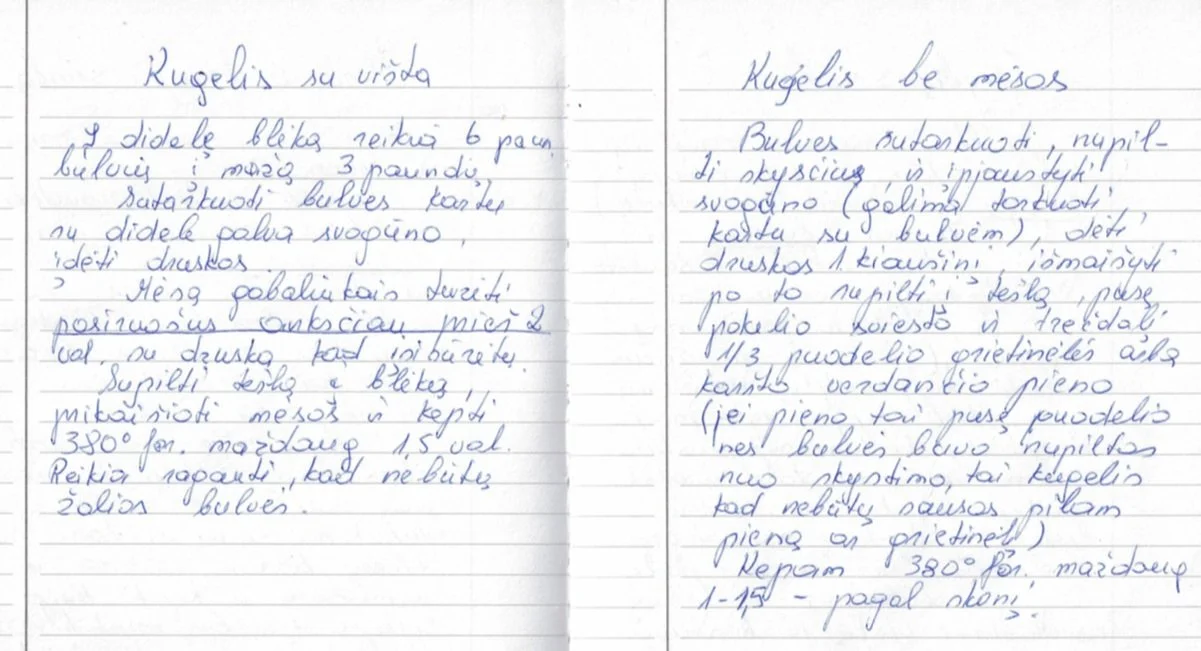 Kugelis su višta
Į didelę blėką reikia 6 paun.
bulvių į mažą 3 paundų.
Sutarkuoti bulves kartu
su didele galva svogūno,
įdėti druskos.
Mėsą gabaliukais turėti
pasiruošus anksčiau prieš 2
val. su druska, kad įsibūrėtų.
Supilti tešlą į blėką,
prikaišioti mėsos ir kepti
380° far. maždaug 1,5 val.
Reikia ragauti, kad nebūtų
žalios bulvės.
Kugelis be mėsos
Bulves sutarkuoti, nupil-
ti skysčius, ir įpjaustyti
svogūno (galima tarkuoti
kartu su bulvėm), dėti
druskos 1 kiaušinį, išmaišyti
po to supilti į tešlą, pusę
pokelio sviesto ir trečdalį
1/3 puodelio grietinėlės arba
karšto verdančio pieno
(jei pieno tai pusę puodelio
nes bulvės buvo nupiltos
nuo skystimo, tai kugelis
kad nebūtų sausas pilam
pieną ar grietinėlę)
Kepam 380° far. maždaug
1-1,5 - pagal skonį.